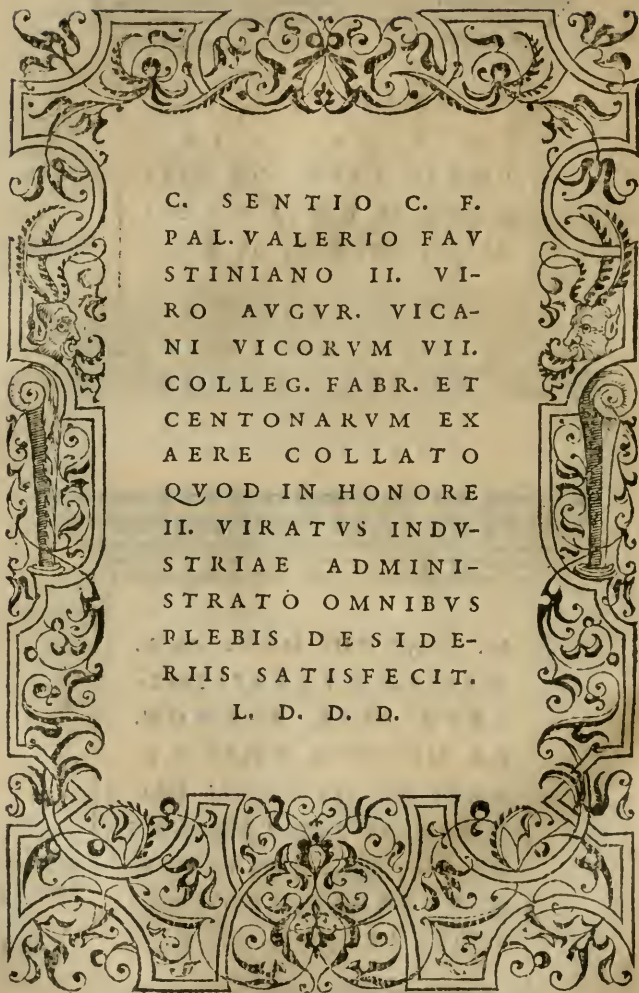 C. SENTIO C. F.
PAL. VALERIO FAV
STINIANO II. VI-
RO AVGVR. VICA-
NI VICORVM VII.
COLLEG. FABR. ET
CENTONARVM EX
AERE COLLATO
QVOD IN HONORE
II. VIRATVS INDV-
STRIAE ADMINI-
STRATO OMNIBVS
PLEBIS DESIDE-
RIIS SATISFECIT.
L. D. D. D.